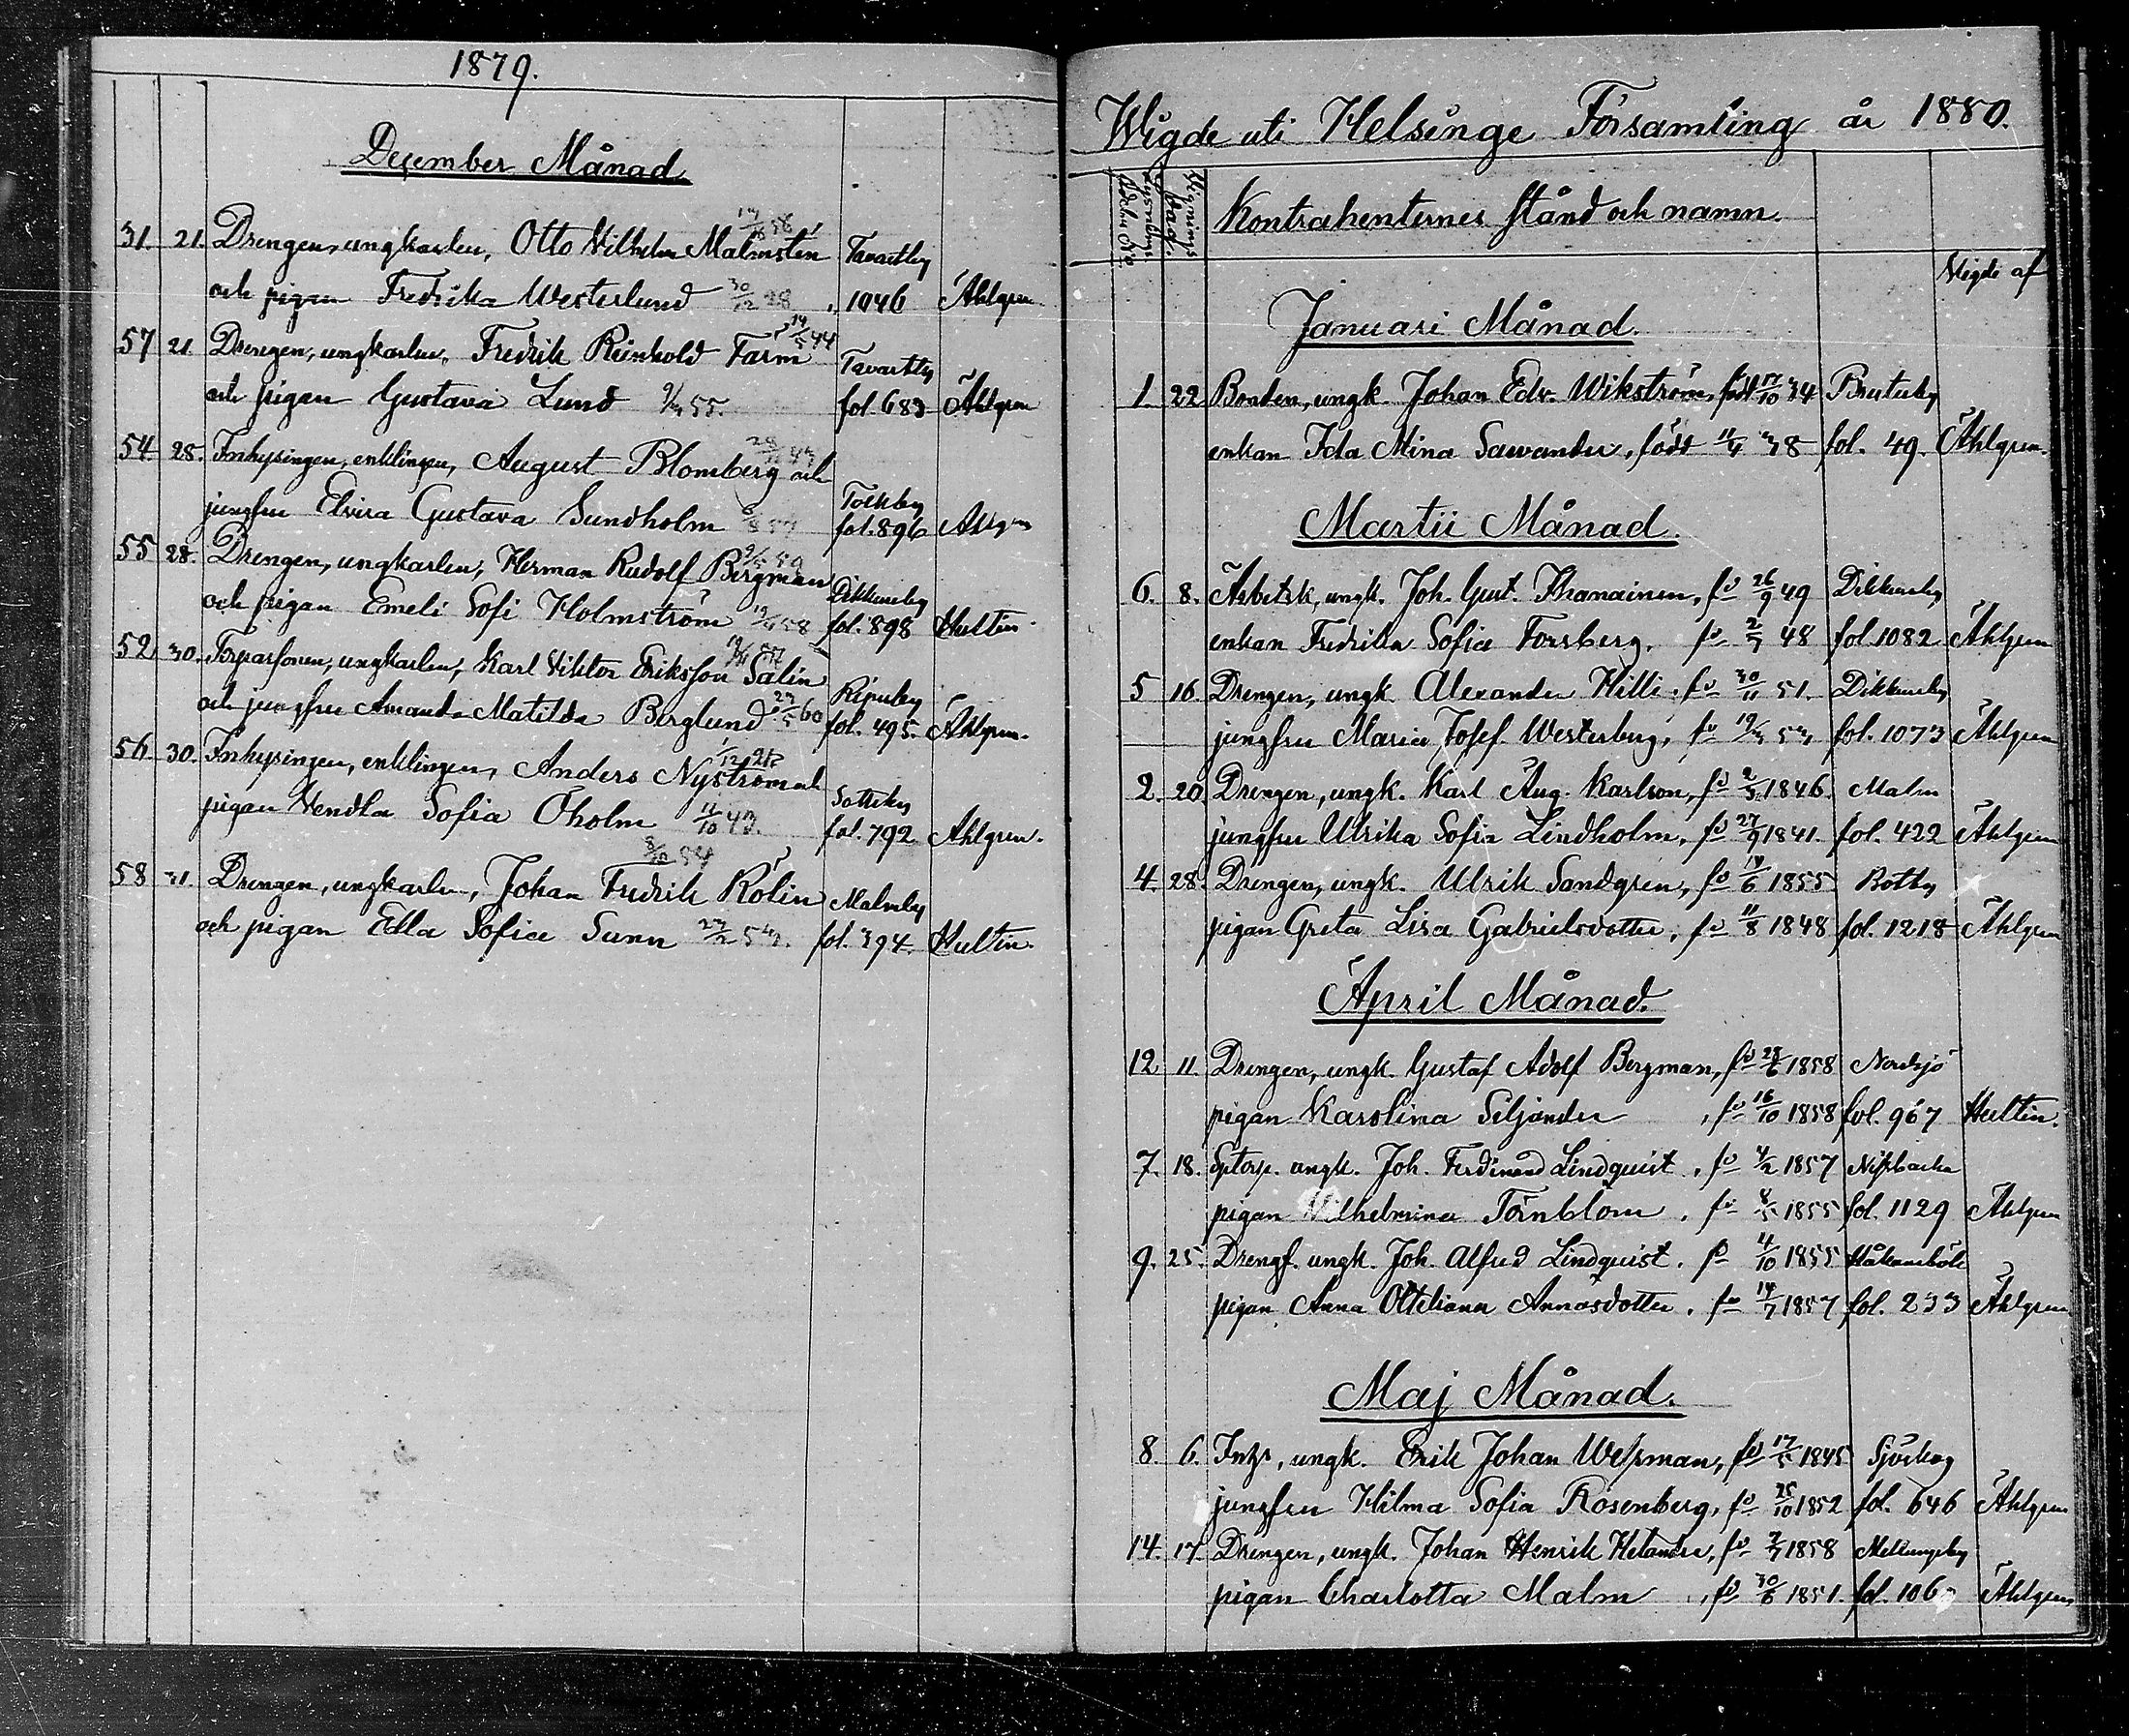 1879.
December Månad
31. 21. Drengen, ungkarlen, Otto Vilhelm Malmstén Tavastby
och pigan Fredrika Westerlund 30/12 28 1046 Åhlgren
57 21 Drengen, ungkarlen, Fredrik Reinhold Farm 14/5 44 Tavastby
och pigan Gustava Lund 55. fol. 683 Åhlgren
54. 28. Inhysingen, enklingen, August Blomberg och
jungfru Elvira Gustava Sundholm Tolkby fol. 896 Åhlgren
55 28. Drengen, ungkarlen, Herman Rudolf Bergman Dikkursby
och pigan Emeli Sofi Holmström 58 fol. 898 Hultin
52. 30. Torparsonen, ungkarlen, Karl Viktor Eriksson Salin Ripuby
och jungfru Amanda Matilda Berglund 23/5 60 fol. 495. Åhlgren.
56. 30. Inhysingen, enklingen, Anders Nyström och Sottby
pigan Vendla Sofia Öholm 11/10 43. fol. 792 Åhlgren.
58 31. Drengen, ungkarlen, Johan Fredrik Rolin Malmby
och pigan Edla Sofia Sunn 53. fol. 394. Hultin.
Wigde uti Helsinge Församling år 1880.
Lysnings bokens No
Vignings dag.
Kontrahenternes stånd och namn.
Vigde af
Januari Månad.
1. 22 Bonden, ungk. Johan Edv. Wikström, född 17/10 34 Brutuby
enkan Ida Mina Sawander, född 11/4 38 fol. 49. Åhlgren.
Martii Månad.
6. 8. Arbetsk, ungk. Joh. Gust. Ihanainen, fd 26/9 49 Dikkursby
enkan Fredrika Sofia Forsberg, fd 2/7 48 fol. 1082 Åhlgren
5 16. Drengen, ungk. Alexander Hilli, fd 30/11 51. Dikkursby
jungfru Maria Josef. Westerberg, fd 19/3 53 fol. 1073 Åhlgren
2. 20 Drengen, ungk. Karl Aug. Karlson, fd 2/3 1846. Malm
jungfru Ulrika Sofia Lindholm, fd 27/9 1841. fol. 422 Åhlgren
4. 28. Drengen, ungk. Ulrik Sandgren, fd 18/6 1855 Botby
pigan Greta Lisa Gabrielsdotter, fd 11/8 1848 fol. 1218 Åhlgren
April Månad.
12 11. Drengen, ungk. Gustaf Adolf Bergman, fd 28/6 1858 Nordsjö
pigan Karolina Siljander, fd 16/10 1858 fol. 967 Hultin.
7. 18. Sptorp. ungk. Joh. Ferdinand Lindquist, fd 4/2 1857 Nissbacka
pigan Vilhelmina Törnblom, fd 8/5 1855 fol. 1129 Åhlgren
9. 25. Drengf. ungk. Joh. Alfred Lindquist, fd 4/10 1855 Håkansböle
pigan Anna Ottiliana Annasdotter, fd 14/7 1857 fol. 233 Åhlgren
Maj Månad.
8. 6. Inhs, ungk. Erik Johan Wessman, fd 17/5 1845 Sjöskog
jungfru Hilma Sofia Rosenberg, fd 25/10 1852 fol. 646 Åhlgren
14. 17. Drengen, ungk. Johan Henrik Helander, fd 7/7 1858 Mellungsby
pigan Charlotta Malm, fd 30/6 1851. fol. 106 Åhlgren